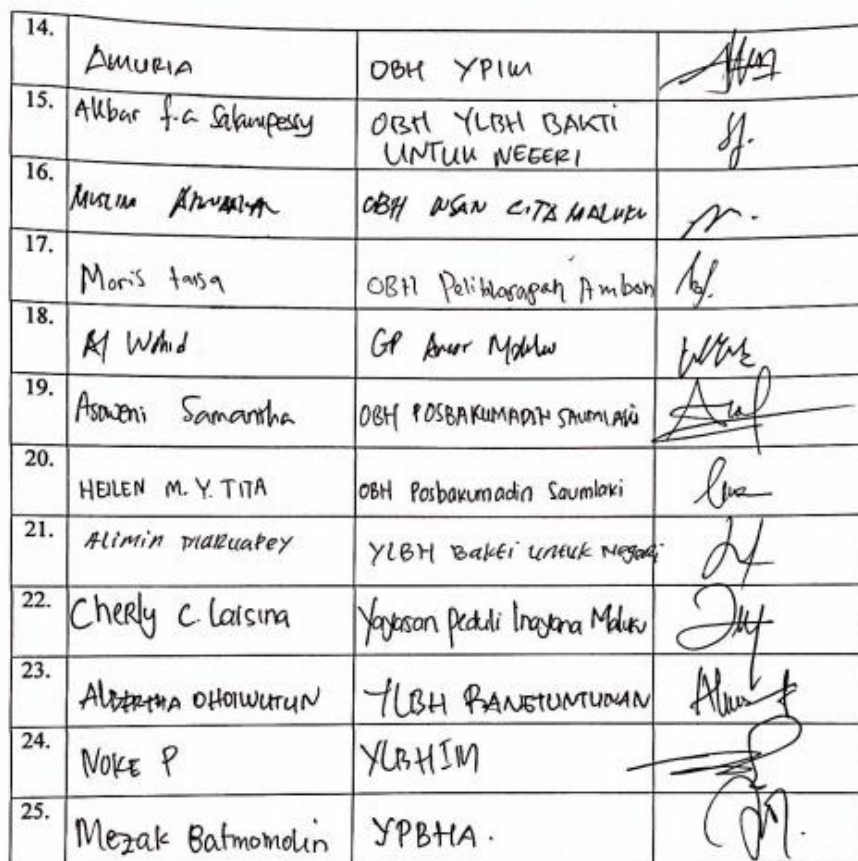 14.
AMURIA OBH YPIM
15.
Akbar f.a Salampessy OBH YLBH BAKTI
UNTUK NEGERI
16.
MUSLIM OBH INSAN CITA MALUKU
17.
Moris tasa OBH Ambon
18.
Al Wahid GP Ansor Maluku
19.
Asoweni Samantha OBH POSBAKUMADIN SAUMLAKI
20.
HEILEN M. Y. TITA OBH Posbakumadin Saumlaki
21.
Alimin YLBH Bakti untuk Negeri
22.
Cherly C. Laisina Yayasan Peduli Inayana Maluku
23.
ALBERTHA OHOIWUTUN YLBH
24.
NOKE P YLBHIM
25.
Mezak Batmomolin YPBHA.